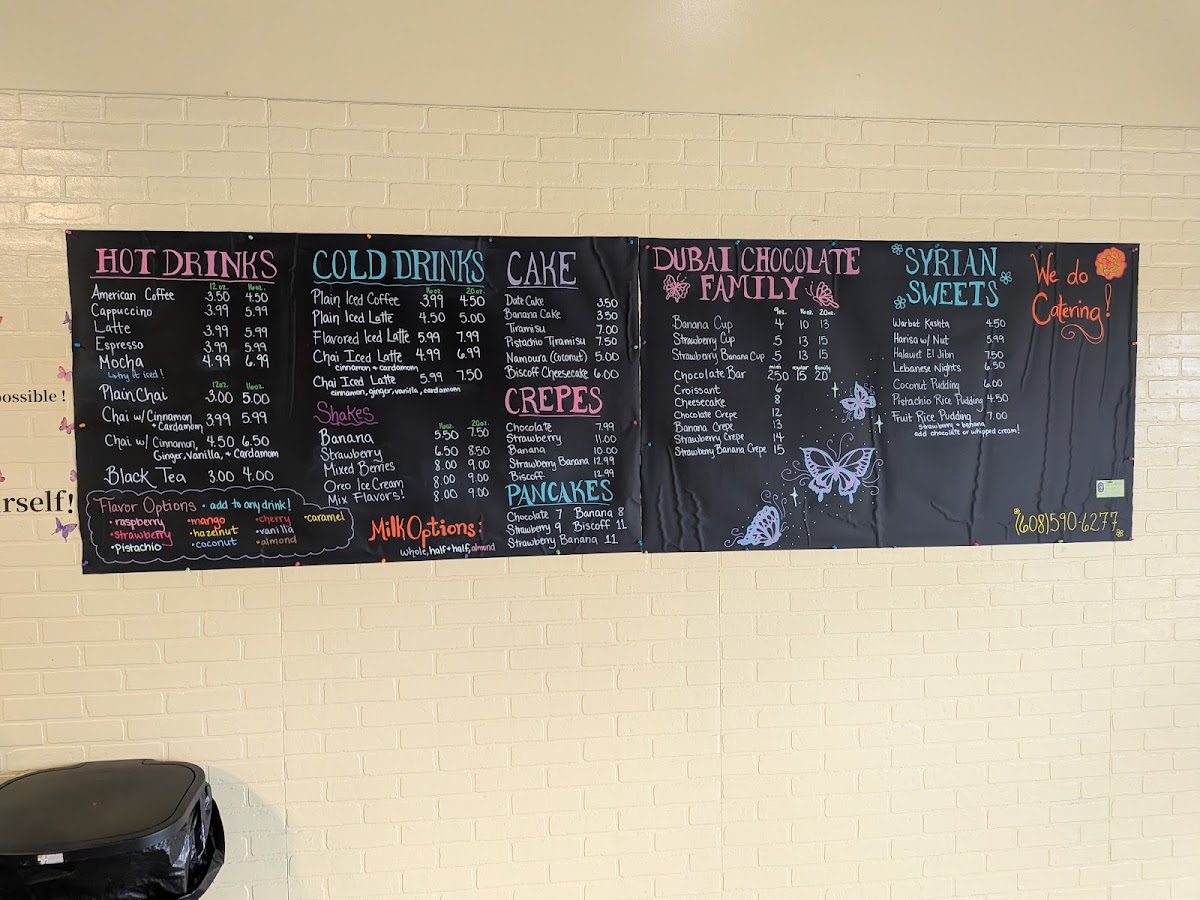 ossible !
rself!
HOT DRINKS
12oz. 16oz.
American Coffee 3.50 4.50
Cappuccino 3.99 5.99
Latte 3.99 5.99
Espresso 3.99 5.99
Mocha 4.99 6.99
try it iced!
12oz. 16oz.
Plain Chai 3.00 5.00
Chai w/ Cinnamon 3.99 5.99
+ Cardamom
Chai w/ Cinnamon, 4.50 6.50
Ginger, Vanilla, + Cardamom
Black Tea 3.00 4.00
Flavor Options • add to any drink!
• raspberry • mango • cherry • caramel
• strawberry • hazelnut • vanilla
• Pistachio • coconut • almond
COLD DRINKS
16oz. 20oz.
Plain Iced Coffee 3.99 4.50
Plain Iced Latte 4.50 5.00
Flavored Iced Latte 5.99 7.99
Chai Iced Latte 4.99 6.99
cinnamon + cardamom
Chai Iced Latte 5.99 7.50
cinnamon, ginger, vanilla, + cardamom
Shakes
16oz. 20oz.
Banana 5.50 7.50
Strawberry 6.50 8.50
Mixed Berries 8.00 9.00
Oreo Ice Cream 8.00 9.00
Mix Flavors! 8.00 9.00
Milk Options:
whole, half + half, almond
CAKE
Date Cake 3.50
Banana Cake 3.50
Tiramisu 7.00
Pistachio Tiramisu 7.50
Namoura (Coconut) 5.00
Biscoff Cheesecake 6.00
CREPES
Chocolate 7.99
Strawberry 11.00
Banana 10.00
Strawberry Banana 12.99
Biscoff 12.99
PANCAKES
Chocolate 7 Banana 8
Strawberry 9 Biscoff 11
Strawberry Banana 11
DUBAI CHOCOLATE
FAMILY
9oz. 16oz. 20oz.
Banana Cup 4 10 13
Strawberry Cup 5 13 15
Strawberry Banana Cup 5 13 15
mini regular family
Chocolate Bar 2.50 15 20
Croissant 6
Cheesecake 8
Chocolate Crepe 12
Banana Crepe 13
Strawberry Crepe 14
Strawberry Banana Crepe 15
SYRIAN
SWEETS
Warbat Kashta 4.50
Harisa w/ Nut 5.99
Halawet El Jibn 7.50
Lebanese Nights 6.50
Coconut Pudding 6.00
Pistachio Rice Pudding 4.50
Fruit Rice Pudding 7.00
strawberry + banana
add chocolate or whipped cream!
We do
Catering!
(608)590-6277